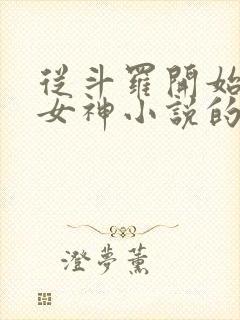 從斗羅開始
女神小説的
澄夢薰